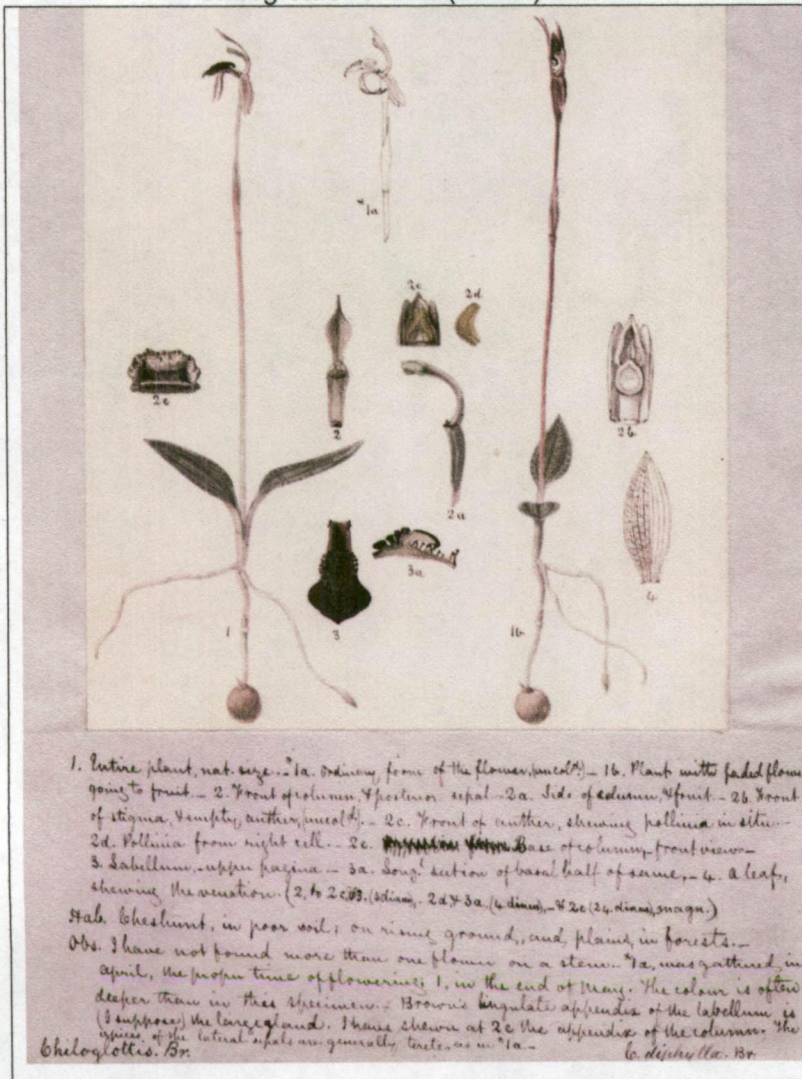 *1a
2c
2d.
2e
2
2b.
2a
3a
3
4.
1
1b.
1. Entire plant, nat. size. - *1a. Ordinary form of the flower, (uncold.) - 1b. Plant with faded flower
going to fruit. - 2. Front of column, & posterior sepal - 2a. Side of column, & fruit. - 2b. Front
of stigma, & empty anther, (uncold.) - 2c. Front of anther, shewing pollinia in situ. -
2d. Pollinia from right cell. - 2e. Base of column, front view. -
3. Labellum, - upper pagina - 3a. Longl. section of basal half of same, - 4. A leaf,
shewing the venation. (2, to 2c, (3 diam), - 2d & 3a (4 diam), - & 2e (24. diam), magn.)
Hab. Cheshunt, in poor soil; on rising ground, and, plains, in forests. -
Obs. I have not found more than one flower on a stem. *1a, was gathered, in
April, the proper time of flowering; 1, in the end of May. The colour is often
deeper than in this specimen. - Brown's lingulate appendix of the labellum is
(I suppose) the large gland. I have shewn at 2e the appendix of the column. The
apices, of the lateral sepals are generally terete, as in *1a -
Chiloglottis. Br.
C. diphylla. Br